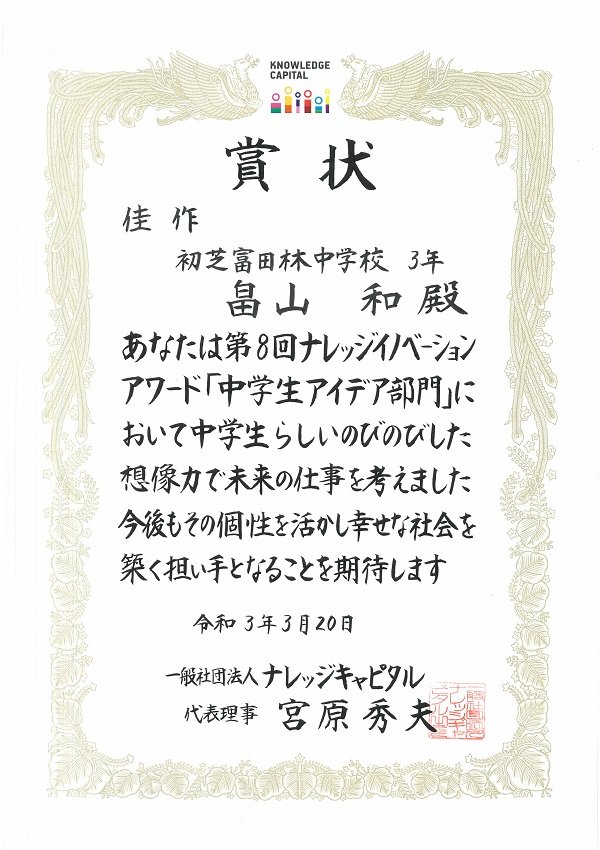 KNOWLEDGE
CAPITAL
賞状
佳作
初芝富田林中学校 3年
畠山 和殿
あなたは第8回ナレッジイノベーション
アワード「中学生アイデア部門」に
おいて中学生らしいのびのびした
想像力で未来の仕事を考えました
今後もその個性を活かし幸せな社会を
築く担い手となることを期待します
令和3年3月20日
一般社団法人 ナレッジキャピタル
代表理事 宮原秀夫